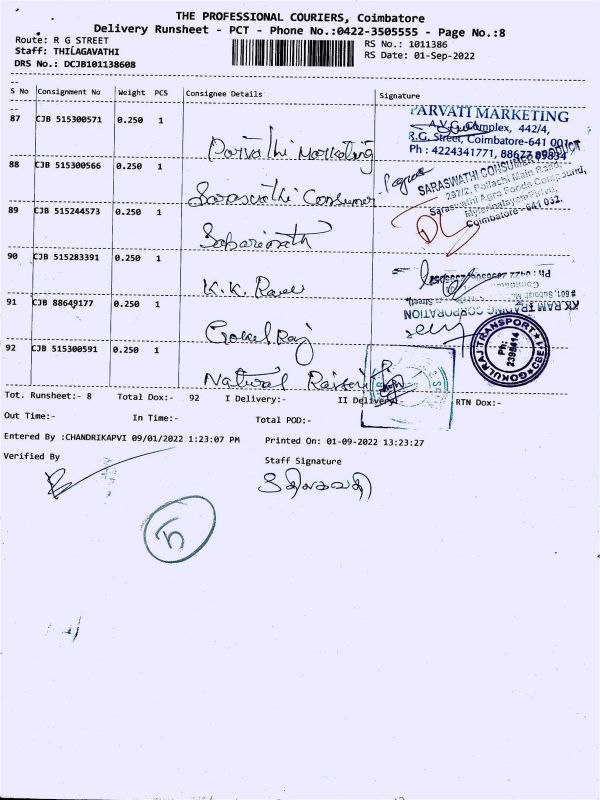 THE PROFESSIONAL COURIERS, Coimbatore
Delivery Runsheet - PCT - Phone No.:0422-3505555 - Page No.:8
Route: R G STREET
RS No.: 1011386
Staff: THILAGAVATHI
RS Date: 01-Sep-2022
DRS No.: DCJB101138608
S No Consignment No Weight PCS Consignee Details Signature
87 CJB 515300571 0.250 1 Parvathi Marketing
PARVATI MARKETING
A.V.G. Complex, 442/4,
R.G. Street, Coimbatore-641 001
Ph : 4224341771, 88677 09834
88 CJB 515300566 0.250 1 Saraswathi Consumer
SARASWATHI CONSUMER PRODUCT
237/2, Pollachi Main Road,
Saraswathi Agro Foods Compound,
Coimbatore - 641 032.
89 CJB 515244573 0.250 1 Sabarinath
90 CJB 515283391 0.250 1 K.K. Ram
KK RAM TRADING CORPORATION
91 CJB 88649177 0.250 1 Gokul Raj
GOKULRAJ TRANSPORT
CBE
Ph:
2398414
92 CJB 515300591 0.250 1 Natural
Tot. Runsheet:- 8 Total Dox:- 92 I Delivery:- II Delivery:- RTN Dox:-
Out Time:- In Time:- Total POD:-
Entered By :CHANDRIKAPVI 09/01/2022 1:23:07 PM Printed On: 01-09-2022 13:23:27
Verified By
Staff Signature
5